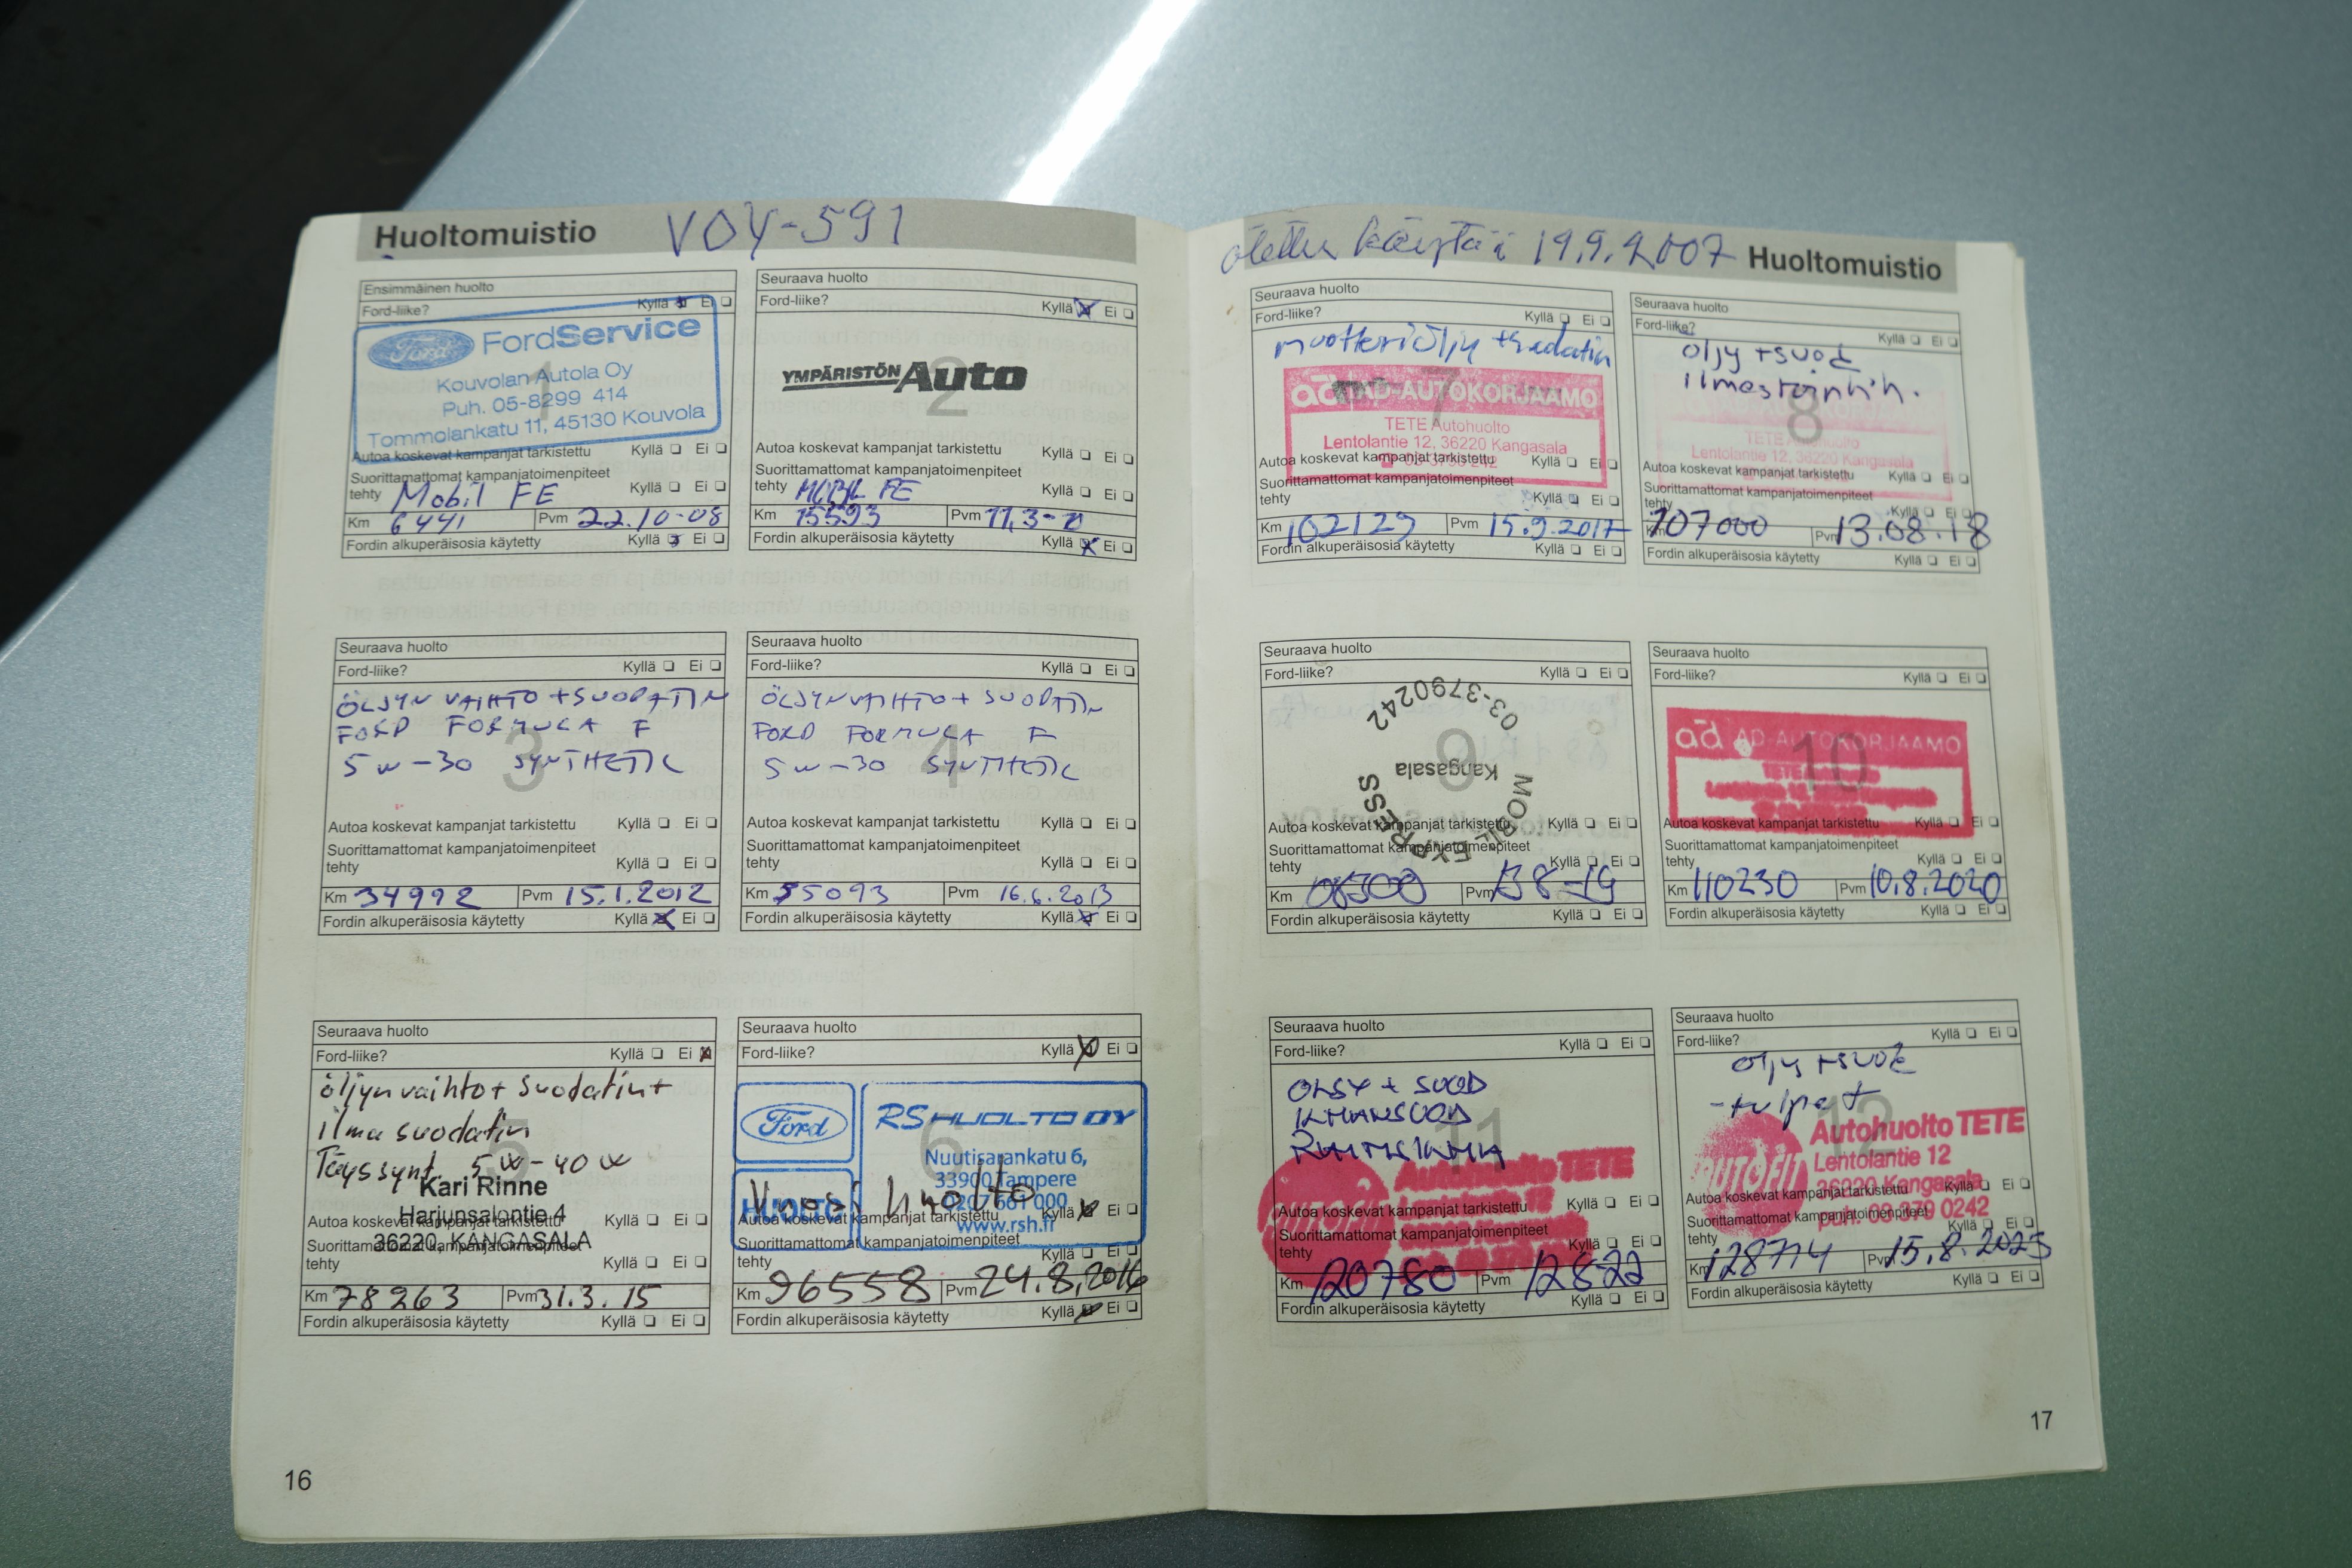 Huoltomuistio VOY-591
Ensimmäinen huolto
Ford-liike? Kyllä Ei
Ford FordService
1
Kouvolan Autola Oy
Puh. 05-8299 414
Tommolankatu 11, 45130 Kouvola
Autoa koskevat kampanjat tarkistettu Kyllä Ei
Suorittamattomat kampanjatoimenpiteet
tehty Kyllä Ei
Mobil FE
Km 6441 Pvm 22.10-08
Fordin alkuperäisosia käytetty Kyllä Ei
Seuraava huolto
Ford-liike? Kyllä Ei
YMPÄRISTÖN Auto
2
Autoa koskevat kampanjat tarkistettu Kyllä Ei
Suorittamattomat kampanjatoimenpiteet
tehty Kyllä Ei
Mobil FE
Km 15593 Pvm 11,3-
Fordin alkuperäisosia käytetty Kyllä Ei
Seuraava huolto
Ford-liike? Kyllä Ei
ÖLJYN VAIHTO + SUODATIN
FORD FORMULA F
5W-30 SYNTHETIC
3
Autoa koskevat kampanjat tarkistettu Kyllä Ei
Suorittamattomat kampanjatoimenpiteet
tehty Kyllä Ei
Km 34992 Pvm 15.1.2012
Fordin alkuperäisosia käytetty Kyllä Ei
Seuraava huolto
Ford-liike? Kyllä Ei
ÖLJYNVAIHTO + SUODATIN
FORD FORMULA F
5W-30 SYNTHETIC
4
Autoa koskevat kampanjat tarkistettu Kyllä Ei
Suorittamattomat kampanjatoimenpiteet
tehty Kyllä Ei
Km 55093 Pvm 16.6.2013
Fordin alkuperäisosia käytetty Kyllä Ei
Seuraava huolto
Ford-liike? Kyllä Ei
öljynvaihto + suodatin +
ilmasuodatin
Täyssynt. 5W-40W
5
Kari Rinne
Harjunsalontie 4
36220, KANGASALA
Autoa koskevat kampanjat tarkistettu Kyllä Ei
Suorittamattomat kampanjatoimenpiteet
tehty Kyllä Ei
Km 78263 Pvm 31.3.15
Fordin alkuperäisosia käytetty Kyllä Ei
Seuraava huolto
Ford-liike? Kyllä Ei
Ford RS HUOLTO OY
6
Nuutisarankatu 6,
33900 Tampere
HUOLTO
www.rsh.fi
Vuosi huolto
Autoa koskevat kampanjat tarkistettu Kyllä Ei
Suorittamattomat kampanjatoimenpiteet
tehty Kyllä Ei
Km 96558 Pvm 24.8.2016
Fordin alkuperäisosia käytetty Kyllä Ei
16
otettu käyttöön 19.9.2007 Huoltomuistio
Seuraava huolto
Ford-liike? Kyllä Ei
moottoriöljy + suodatin
7
ad AD-AUTOKORJAAMO
TETE Autohuolto
Lentolantie 12, 36220 Kangasala
Autoa koskevat kampanjat tarkistettu Kyllä Ei
Suorittamattomat kampanjatoimenpiteet
tehty Kyllä Ei
Km 102129 Pvm 15.9.2017
Fordin alkuperäisosia käytetty Kyllä Ei
Seuraava huolto
Ford-liike? Kyllä Ei
öljy + suod
8
TETE Autohuolto
Lentolantie 12, 36220 Kangasala
Autoa koskevat kampanjat tarkistettu Kyllä Ei
Suorittamattomat kampanjatoimenpiteet
tehty Kyllä Ei
Km 107000 Pvm 13.08.18
Fordin alkuperäisosia käytetty Kyllä Ei
Seuraava huolto
Ford-liike? Kyllä Ei
03-3790242
9
Kangasala
MOBIL EXPRESS
Autoa koskevat kampanjat tarkistettu Kyllä Ei
Suorittamattomat kampanjatoimenpiteet
tehty Kyllä Ei
Km Pvm
Fordin alkuperäisosia käytetty Kyllä Ei
Seuraava huolto
Ford-liike? Kyllä Ei
ad AD-AUTOKORJAAMO
10
Autoa koskevat kampanjat tarkistettu Kyllä Ei
Suorittamattomat kampanjatoimenpiteet
tehty Kyllä Ei
Km 110230 Pvm 10.8.2020
Fordin alkuperäisosia käytetty Kyllä Ei
Seuraava huolto
Ford-liike? Kyllä Ei
ÖLJY + SUOD
ILMANSUOD
RAITISILMA
11
Autohuolto TETE
Autoa koskevat kampanjat tarkistettu Kyllä Ei
Suorittamattomat kampanjatoimenpiteet
tehty Kyllä Ei
Km 120780 Pvm 12822
Fordin alkuperäisosia käytetty Kyllä Ei
Seuraava huolto
Ford-liike? Kyllä Ei
öljy + suod
- tulpat
12
AUTOFIT Autohuolto TETE
Lentolantie 12
36220 Kangasala
puh. 03 379 0242
Autoa koskevat kampanjat tarkistettu Kyllä Ei
Suorittamattomat kampanjatoimenpiteet
tehty Kyllä Ei
Km 128774 Pvm 15.8.2023
Fordin alkuperäisosia käytetty Kyllä Ei
17